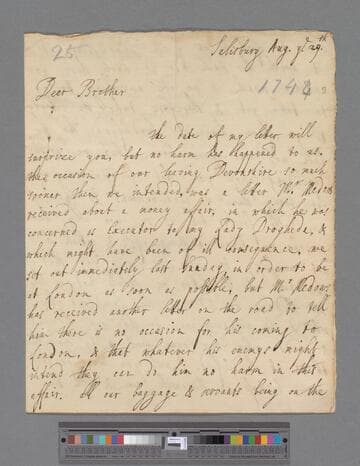 25
Salisbury Aug. ye 29th
1742
Dear Brother
the date of my letter will
surprize you, but no harm has happened to us.
the occasion of our leaving Devonshire so much
sooner then we intended was a letter Mr. Medows
received about a money affair, in which he was
concerned as Executor to my Lady Drogheda, &
which might have been of ill consequence, we
set out immediately last Sunday, in order to be
at London as soon as possible, but Mr. Medows
has received another letter on the road to tell
him there is no occasion for his coming to
London, & that whatever his enemys might
intend they can do him no harm in this
affair. All our baggage & servants being on the